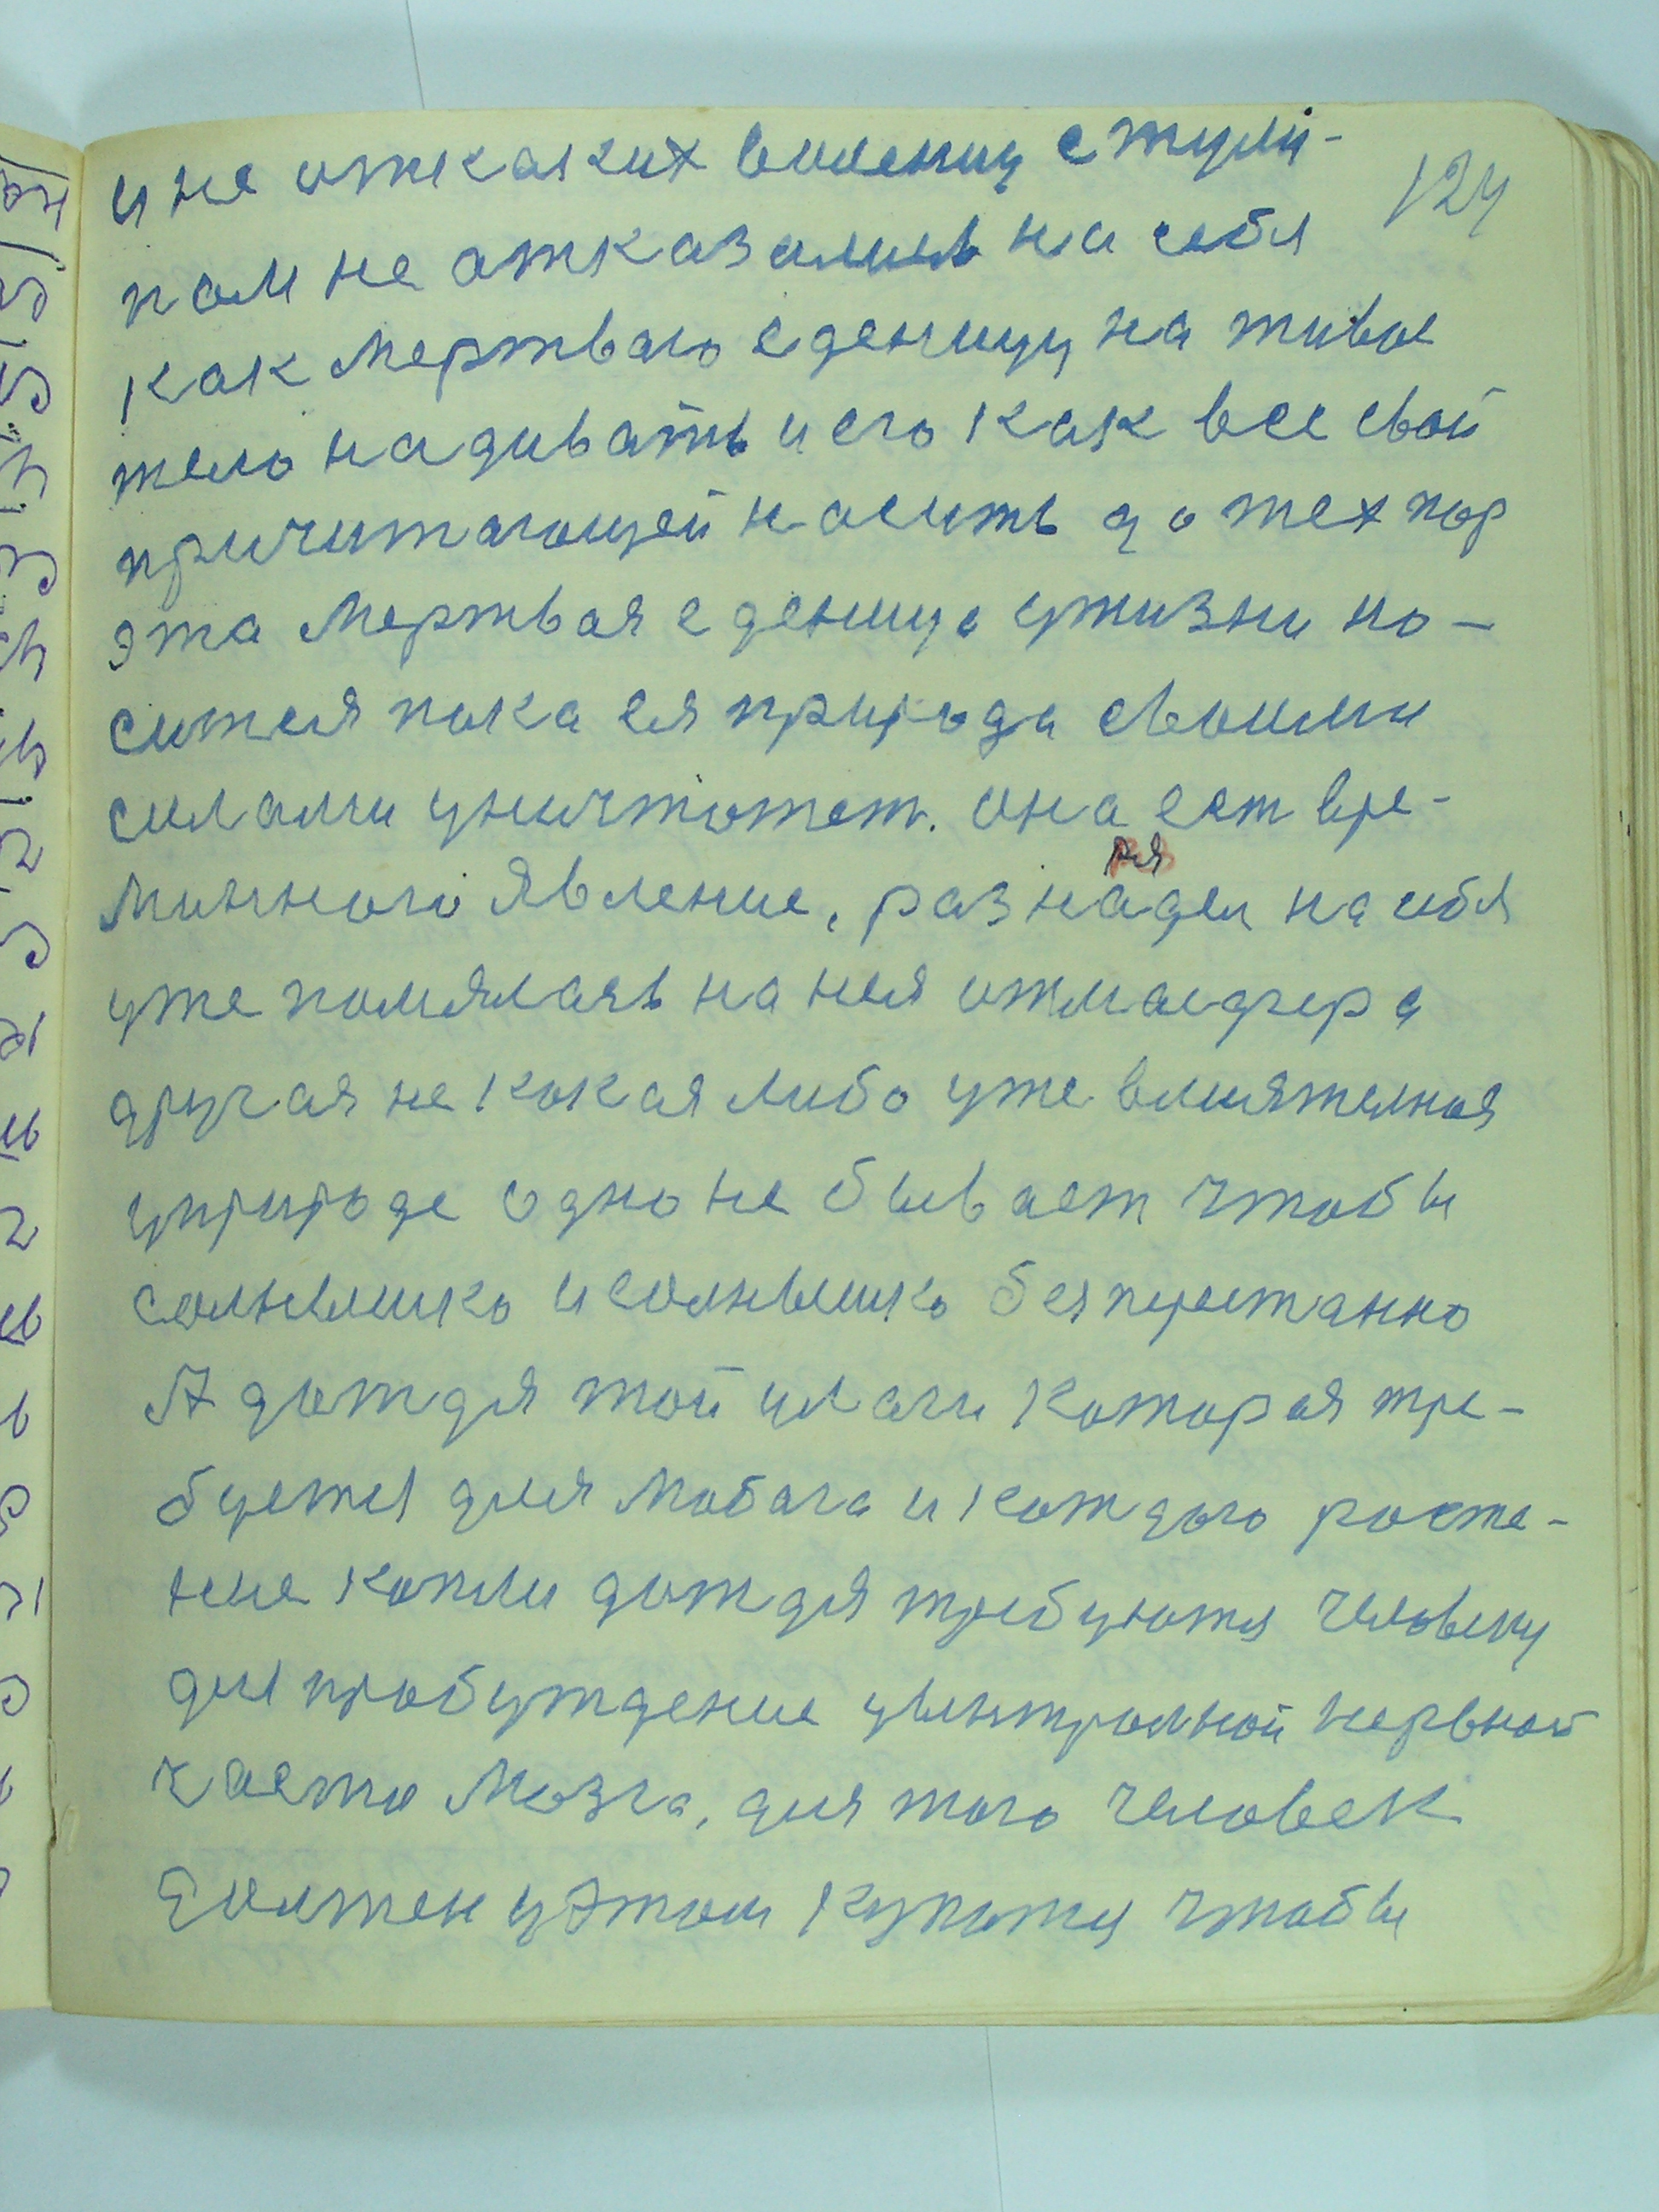 124
и не откаких волениу стули-
пом не отказались на себя
как мертваго еденицу на живое
тело надивать и его как все свои
причитающей насить до тех пор
эта мертвая еденица ужизни но-
ситея пока ея природа своими
силами уничтожет. она ест вре-
минного явление, раз надел на себя
ня
уже помялась на нея отмасфера
другая не кокая либо уже влиятелная
уприроде одно не бывает чтобы
солнышко и солнышко бяспрестанно
А дождя той улаги которая тре-
буетя для любога и кождого росте-
ние копли дождя требуютя человеку
для пробуждение уцентролной нервной
часто мозга, для того человек
Должен уэтом купатя чтобы